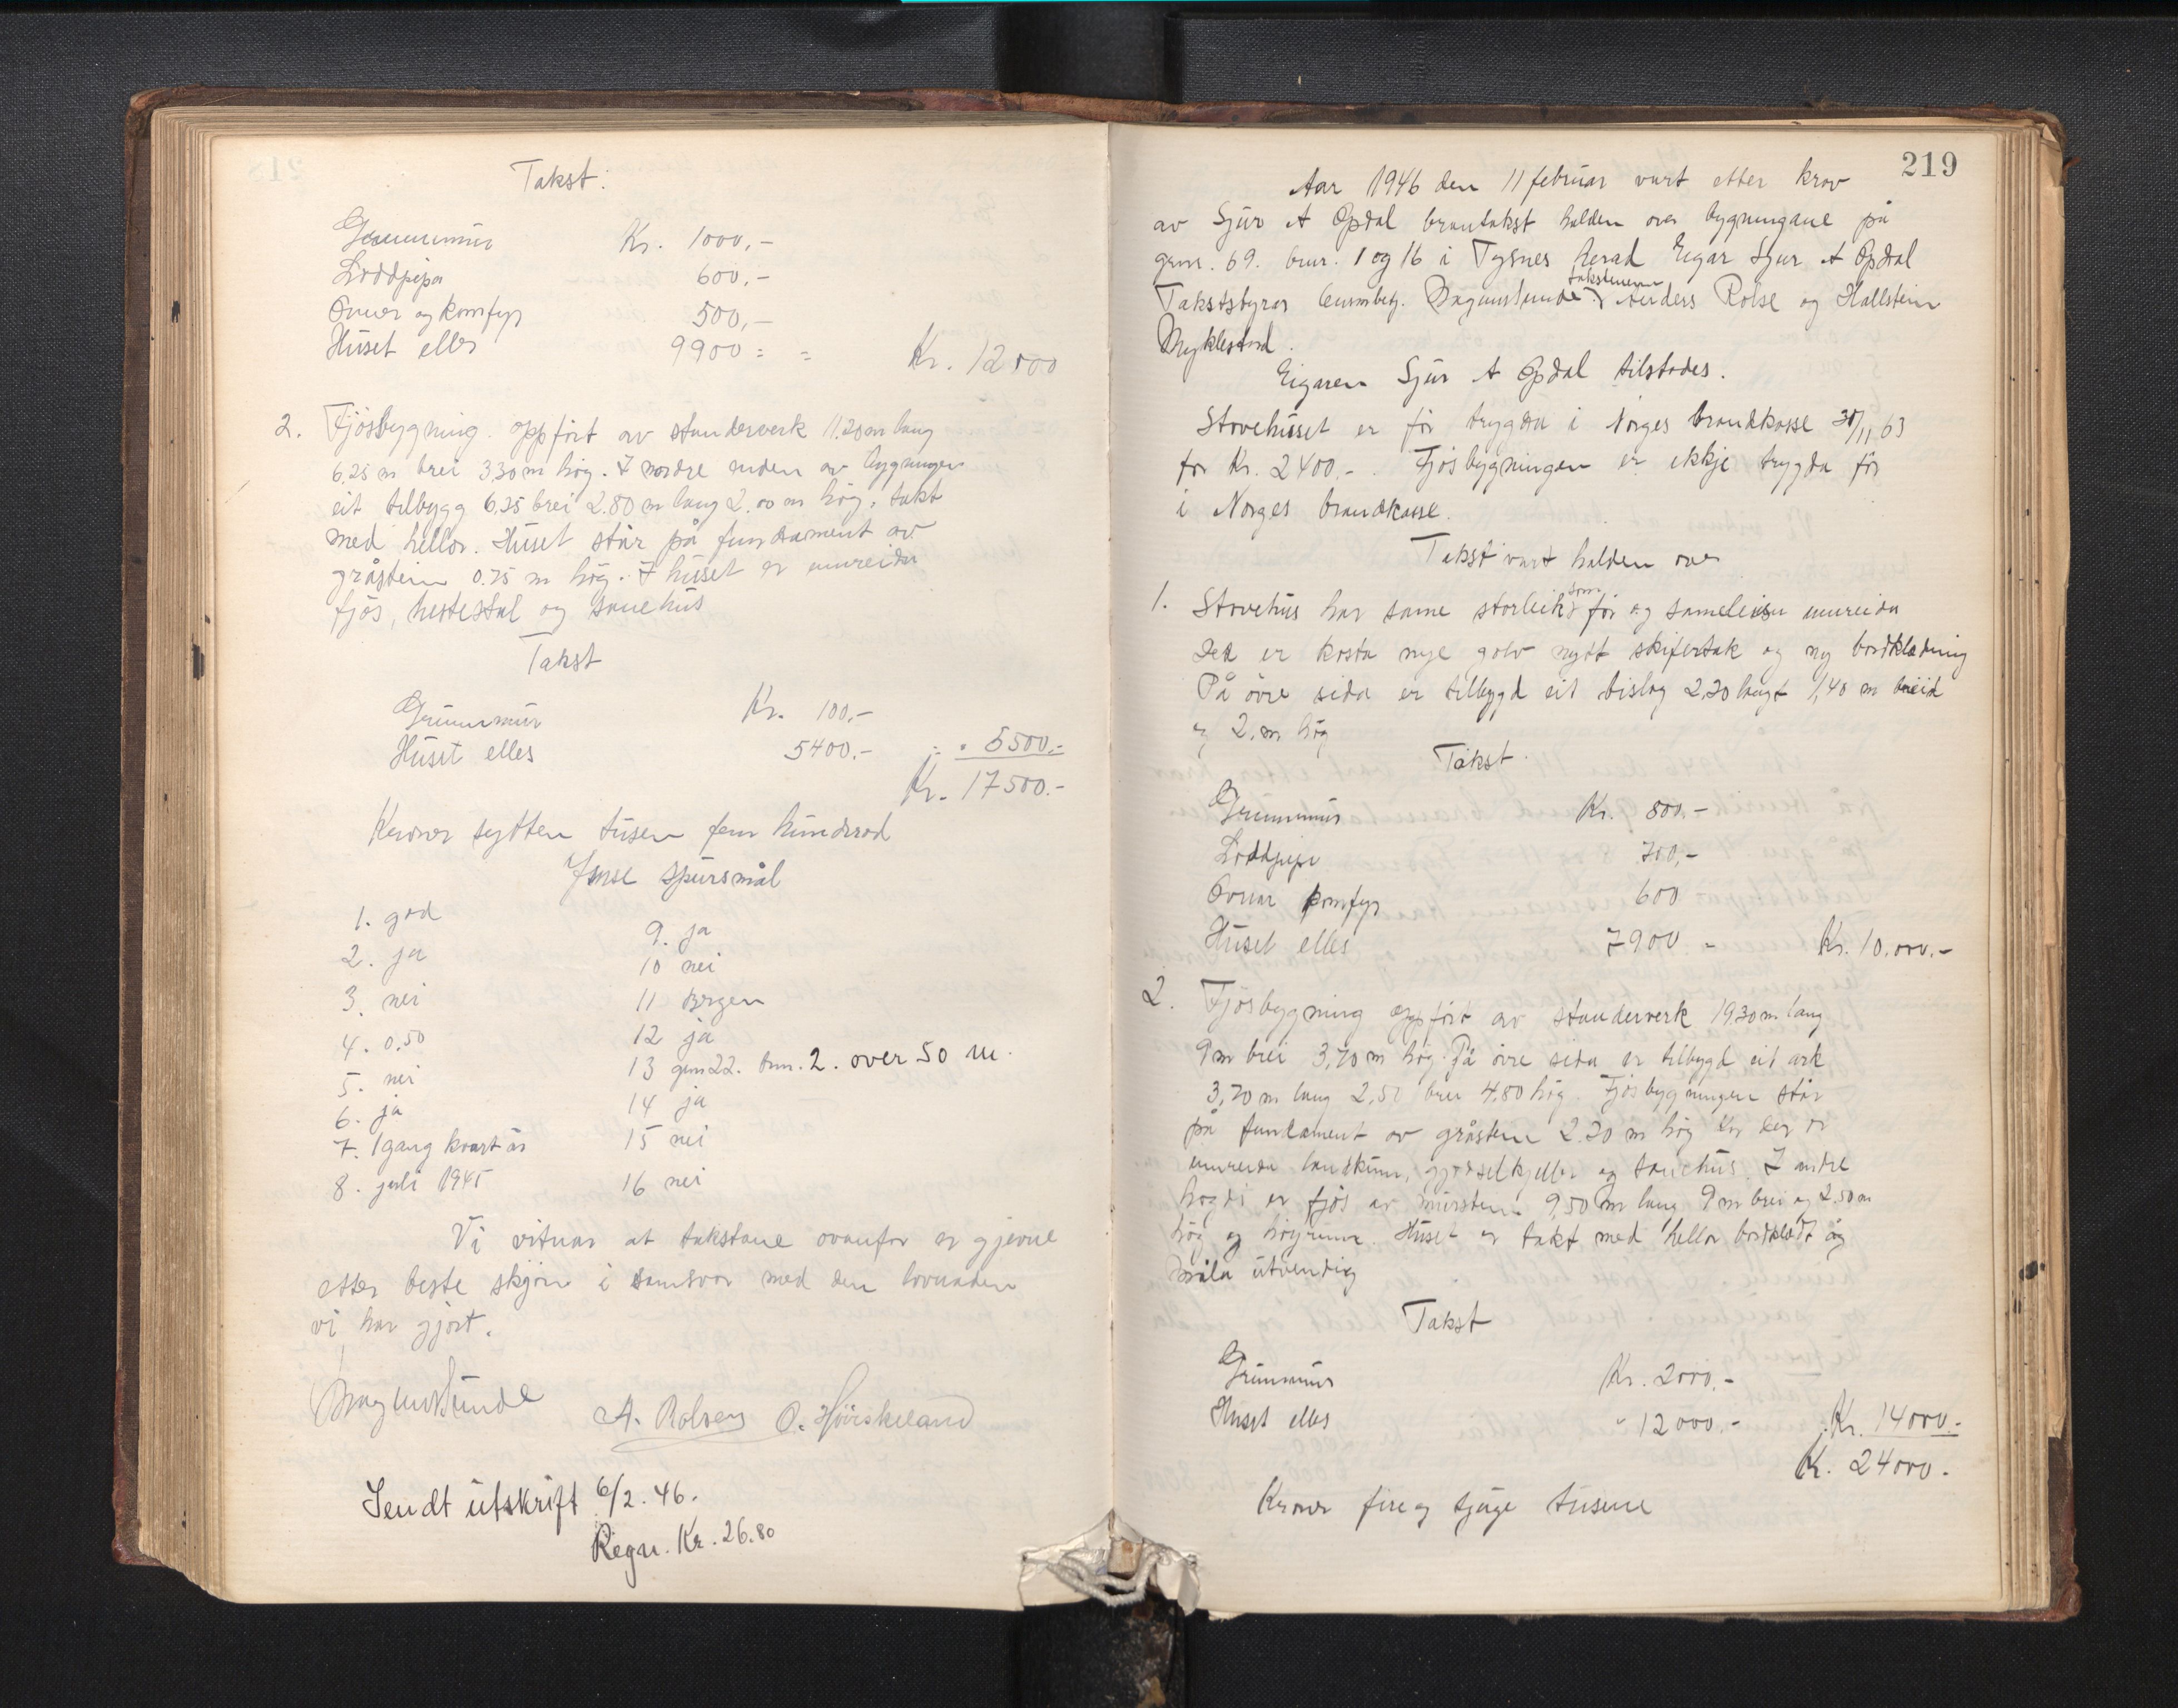 Takst:
Grunnmur Kr. 1000,-
Loddpipa 600,-
Omner og komfyr 500,-
Huset elles 9900 = = Kr. 12000
2. Fjösbygning. oppfört av standerverk 11.20 m lang
6,25 m brei 3,30 m hög. I nordre enden av bygningen
eit tilbygg 6,25 brei 2.80 m lang 2.00 m hög, takt
med hellor. Huset står på fundament av
gråstein 0.75 m hög. I huset er innreida
fjös, hestestal og sauehus
Takst
Grunnmur Kr. 100,-
Huset elles 5400.- = . 5500,-
Kr. 17500.-
Kroner sytten tusen fem hundrad
Ymse spursmål
1. god
2. ja
3. nei
4. 0,50
5. nei
6. ja
7. 1 gang kvart år
8. juli 1945
9. ja
10 nei
11 Bergen
12 ja
13 gnr 22. bnr. 2. over 50 m.
14 ja
15 nei
16 nei
Vi vitnar at takstane ovanfor er gjevne
etter beste skjön i samsvar med den lovnaden
vi har gjort.
Magnus Sunde A. Rolsen O. Hövskeland
Sendt utskrift 6/2. 46.
Regn. Kr. 26.80
219
Aar 1946 den 11 februar vart etter krav
av Sjur A Opdal branntakst halden over bygningane på
gnr. 69. bnr. 1 og 16 i Tysnes herad Eigar Sjur A Opdal
Takststyrar lensmbetj. Magnus Sunde. takstmenn Anders Rolse og Hallstein
Myklestad.
Eigaren Sjur A Opdal tilstades.
Stovehuset er för trygda i Norges brandkasse 30/11 63
for Kr. 2400.-. Fjösbygningen er ikkje trygda för
i Norges brandkasse.
Takst vart halden over
1. Stovehus har same storleik som för og sameleisen innreida
Det er kosta nye golv nytt skifertak og ny bordklædning
På övre sida er tilbygd eit bislag 2,20 langt 1,40 m breid
og 2. m hög
Takst.
Grunnmur Kr. 800.-
Loddpipe 700,-
Ovnar komfyr 600
Huset elles 7900 - Kr. 10.000.-
2. Fjösbygning oppfört av standerverk 19,30 m lang
9 m brei 3,70 m hög. På övre sida er tilbygd eit ark
3,70 m lang 2,50 brei 4.80 hög. Fjösbygningen står
på fundament av gråstein 2.20 m hög der er
innreida landkum, gjødselkjeller og sauehus. I andre
högdi er fjös av murstein 9,50 m lang 9 m brei og 2.50 m
hög og höyrum. Huset er takt med hellor bordklædt og
måla utvendig
Takst
Grunnmur Kr. 2000,-
Huset elles " 12000.- Kr. 14000.-
Kr. 24000.
Kroner fire og tjuge tusene